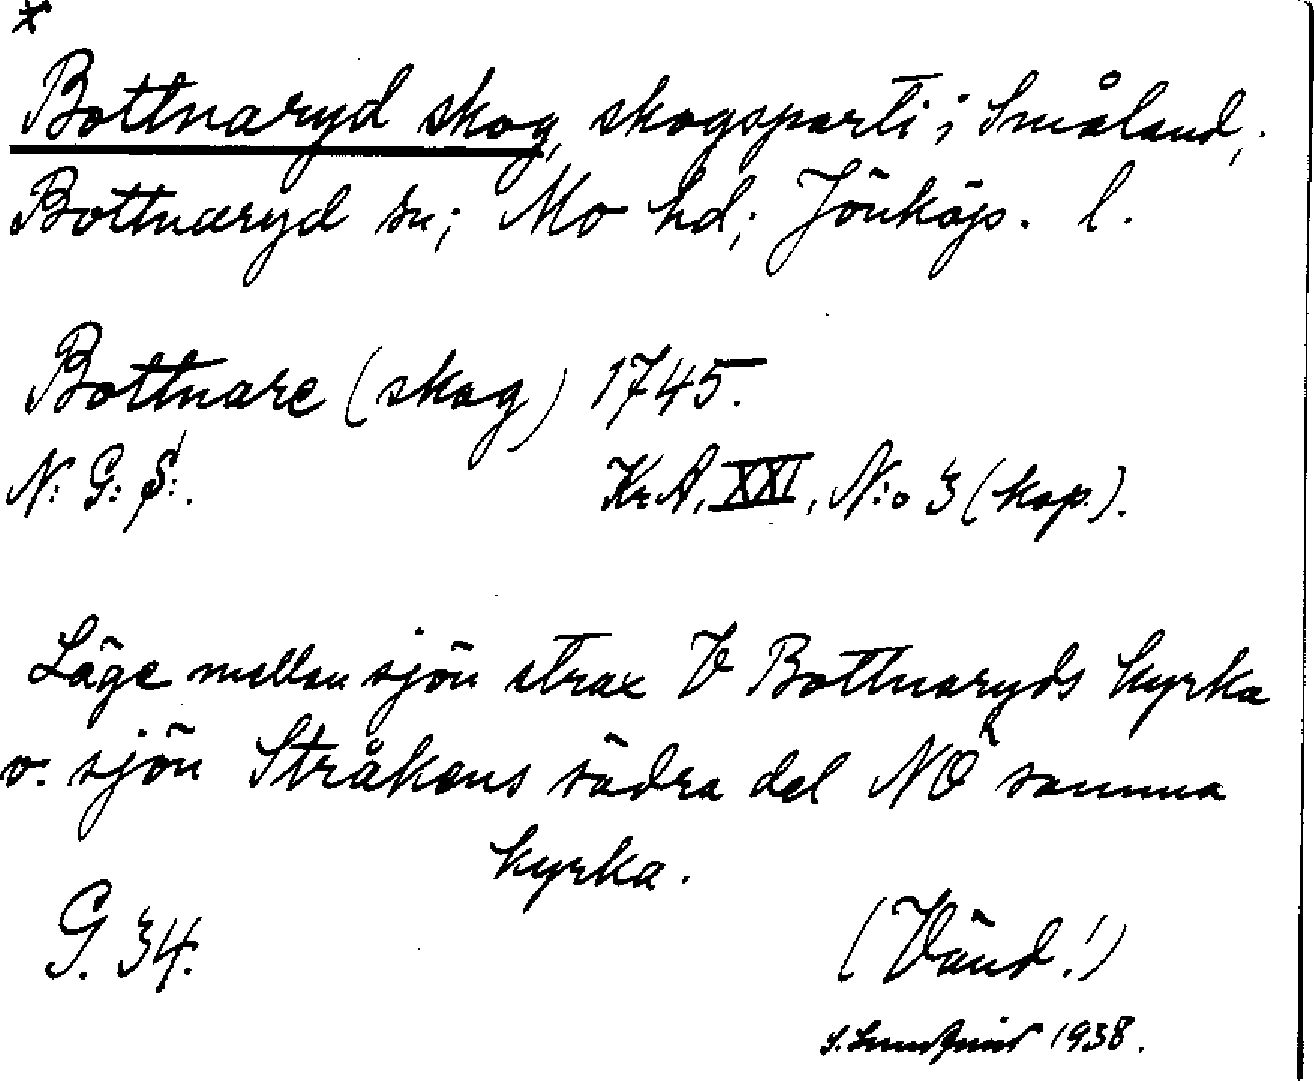 x
Bottnaryd skog, skogsparti i Småland;
Bottnaryd sn; Mo hd; Jönköp. l.
Bottnare (skog) 1745.
N: G: S:.
Kr.A. XXI, N:o 3 (kop.).
Läge mellan sjön strax V Bottnaryds kyrka
o. sjön Stråkens södra del NO samma
kyrka.
G. 34.
(Vänd!)
1938.